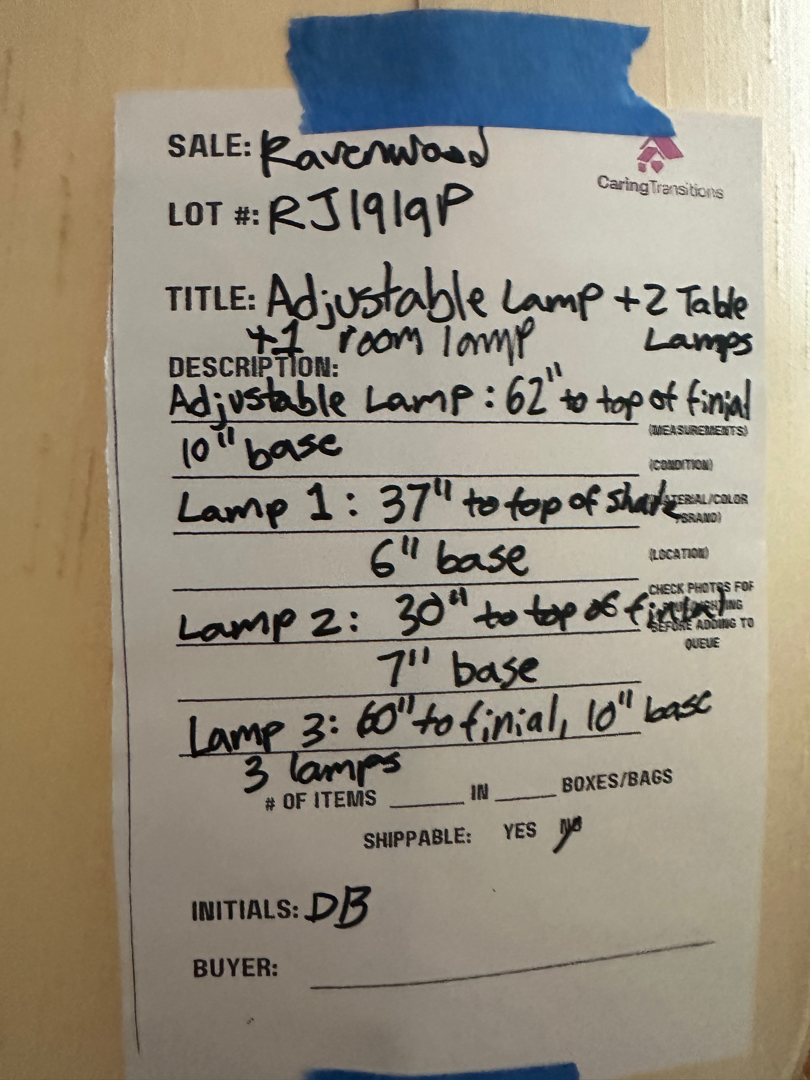 SALE: Ravenwood
CaringTransitions
LOT #: RJ1919P
TITLE: Adjustable Lamp + 2 Table
+1 room lamp Lamps
DESCRIPTION:
Adjustable Lamp: 62" to top of finial
(MEASUREMENTS)
10" base
(CONDITION)
Lamp 1: 37" to top of shade
(MATERIAL/COLOR
BRAND)
6" base
(LOCATION)
CHECK PHOTOS FOR
Lamp 2: 30" to top of finial
BEFORE ADDING TO
QUEUE
7" base
Lamp 3: 60" to finial, 10" base
3 lamps
# OF ITEMS ______ IN ______ BOXES/BAGS
SHIPPABLE: YES NO
INITIALS: DB
BUYER: